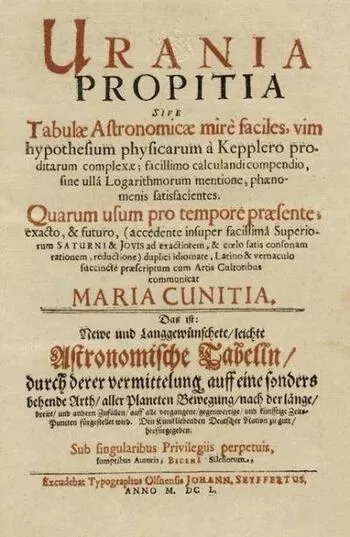 URANIA
PROPITIA
SIVE
Tabulæ Astronomicæ mirè faciles, vim
hypothesium physicarum à Kepplero pro-
ditarum complexæ; facillimo calculandi compendio,
sine ullâ Logarithmorum mentione, phæno-
menis satisfacientes.
Quarum usum pro tempore præsente,
exacto, & futuro, (accedente insuper facillimâ Superio-
rum SATURNI & JOVIS ad exactiorem, & cœlo satis consonam
rationem, reductione) duplici idiomate, Latino & vernaculo
succinctè præscriptum cum Artis Cultoribus
communicat
MARIA CUNITIA.
Das ist:
Newe und Langgewünschete/ leichte
Astronomische Tabelln/
durch derer vermittelung auff eine sonders
behende Arth/ aller Planeten Bewegung/ nach der länge/
breite/ und andern Zufällen/ auff alle vergangene/ gegenwertige/ und künfftige Zeits-
Puncten fürgestellet wird. Den Kunstliebenden Deutscher Nation zu gutt/
herfürgegeben.
Sub singularibus Privilegiis perpetuis,
sumptibus Autoris, BICINI Silesiorum,
Excudebat Typographus Olsnensis JOHANN. SEYFFERTUS,
ANNO M. DC L.